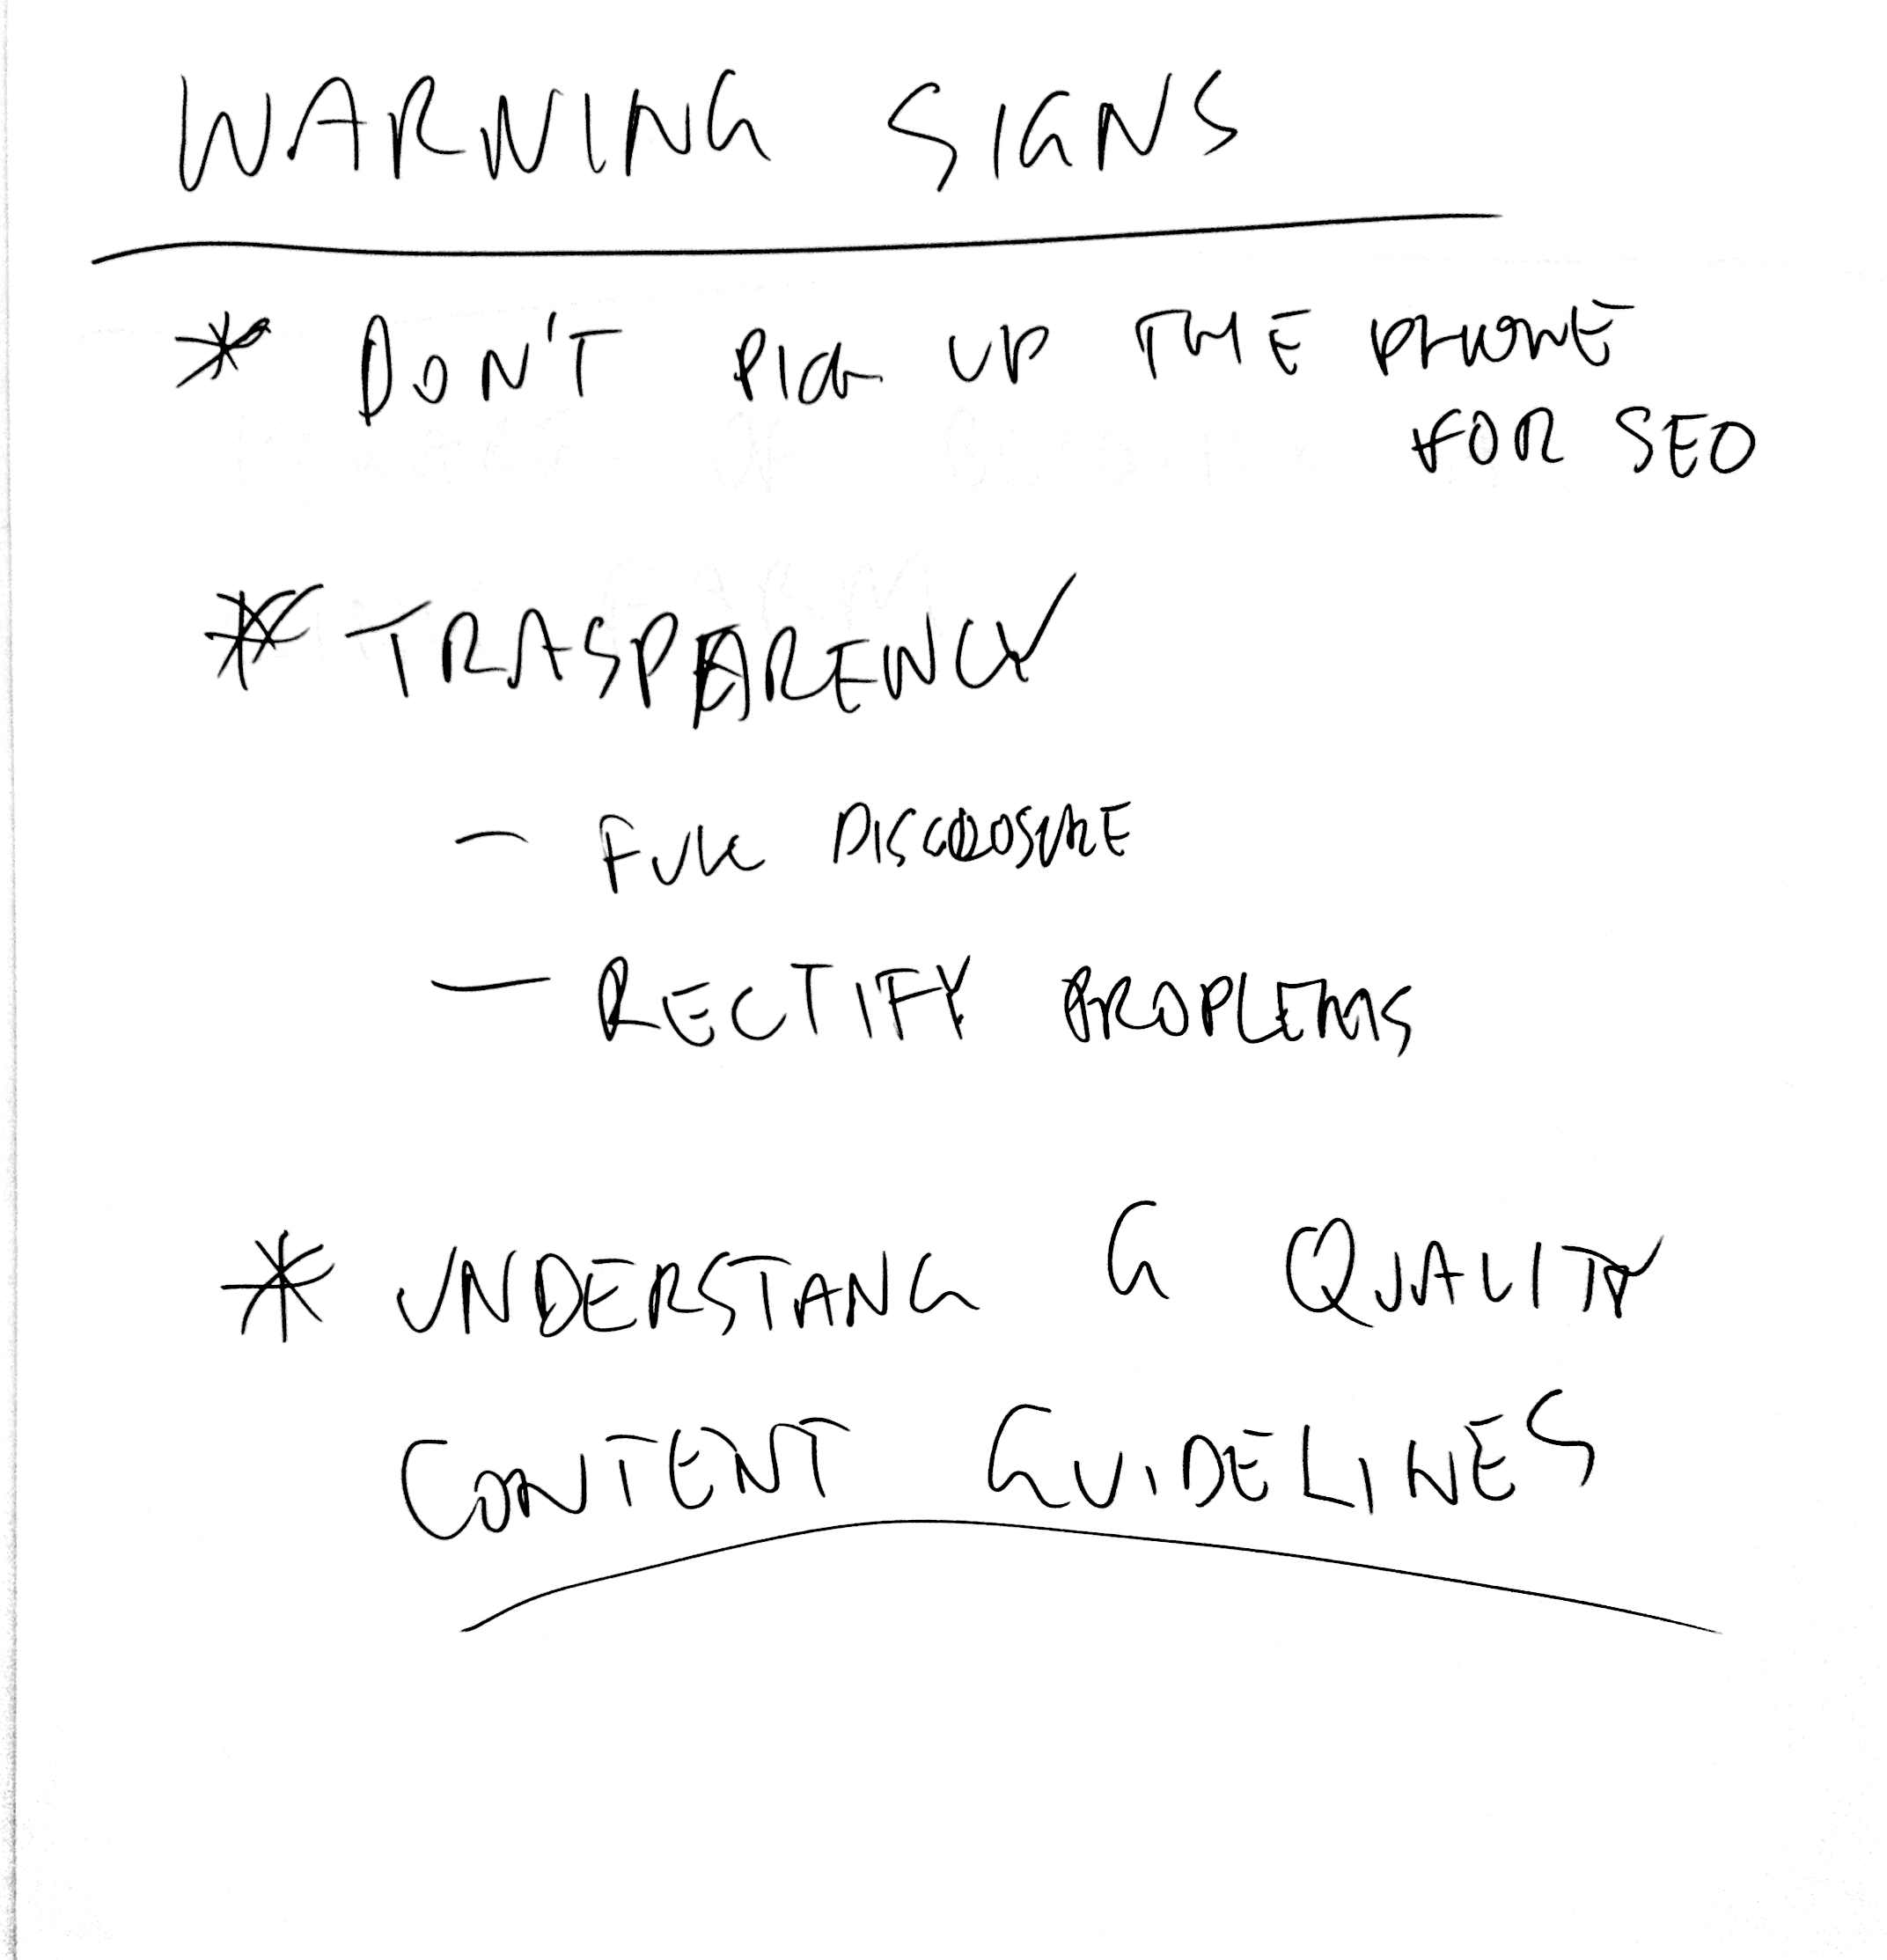 WARNING SIGNS
* DON'T PICK UP THE PHONE
FOR SEO
* TRASPARENCY
- FULL DISCLOSURE
- RECTIFY PROPLEMS
* UNDERSTANG G QUALITY
CONTENT GUIDELINES